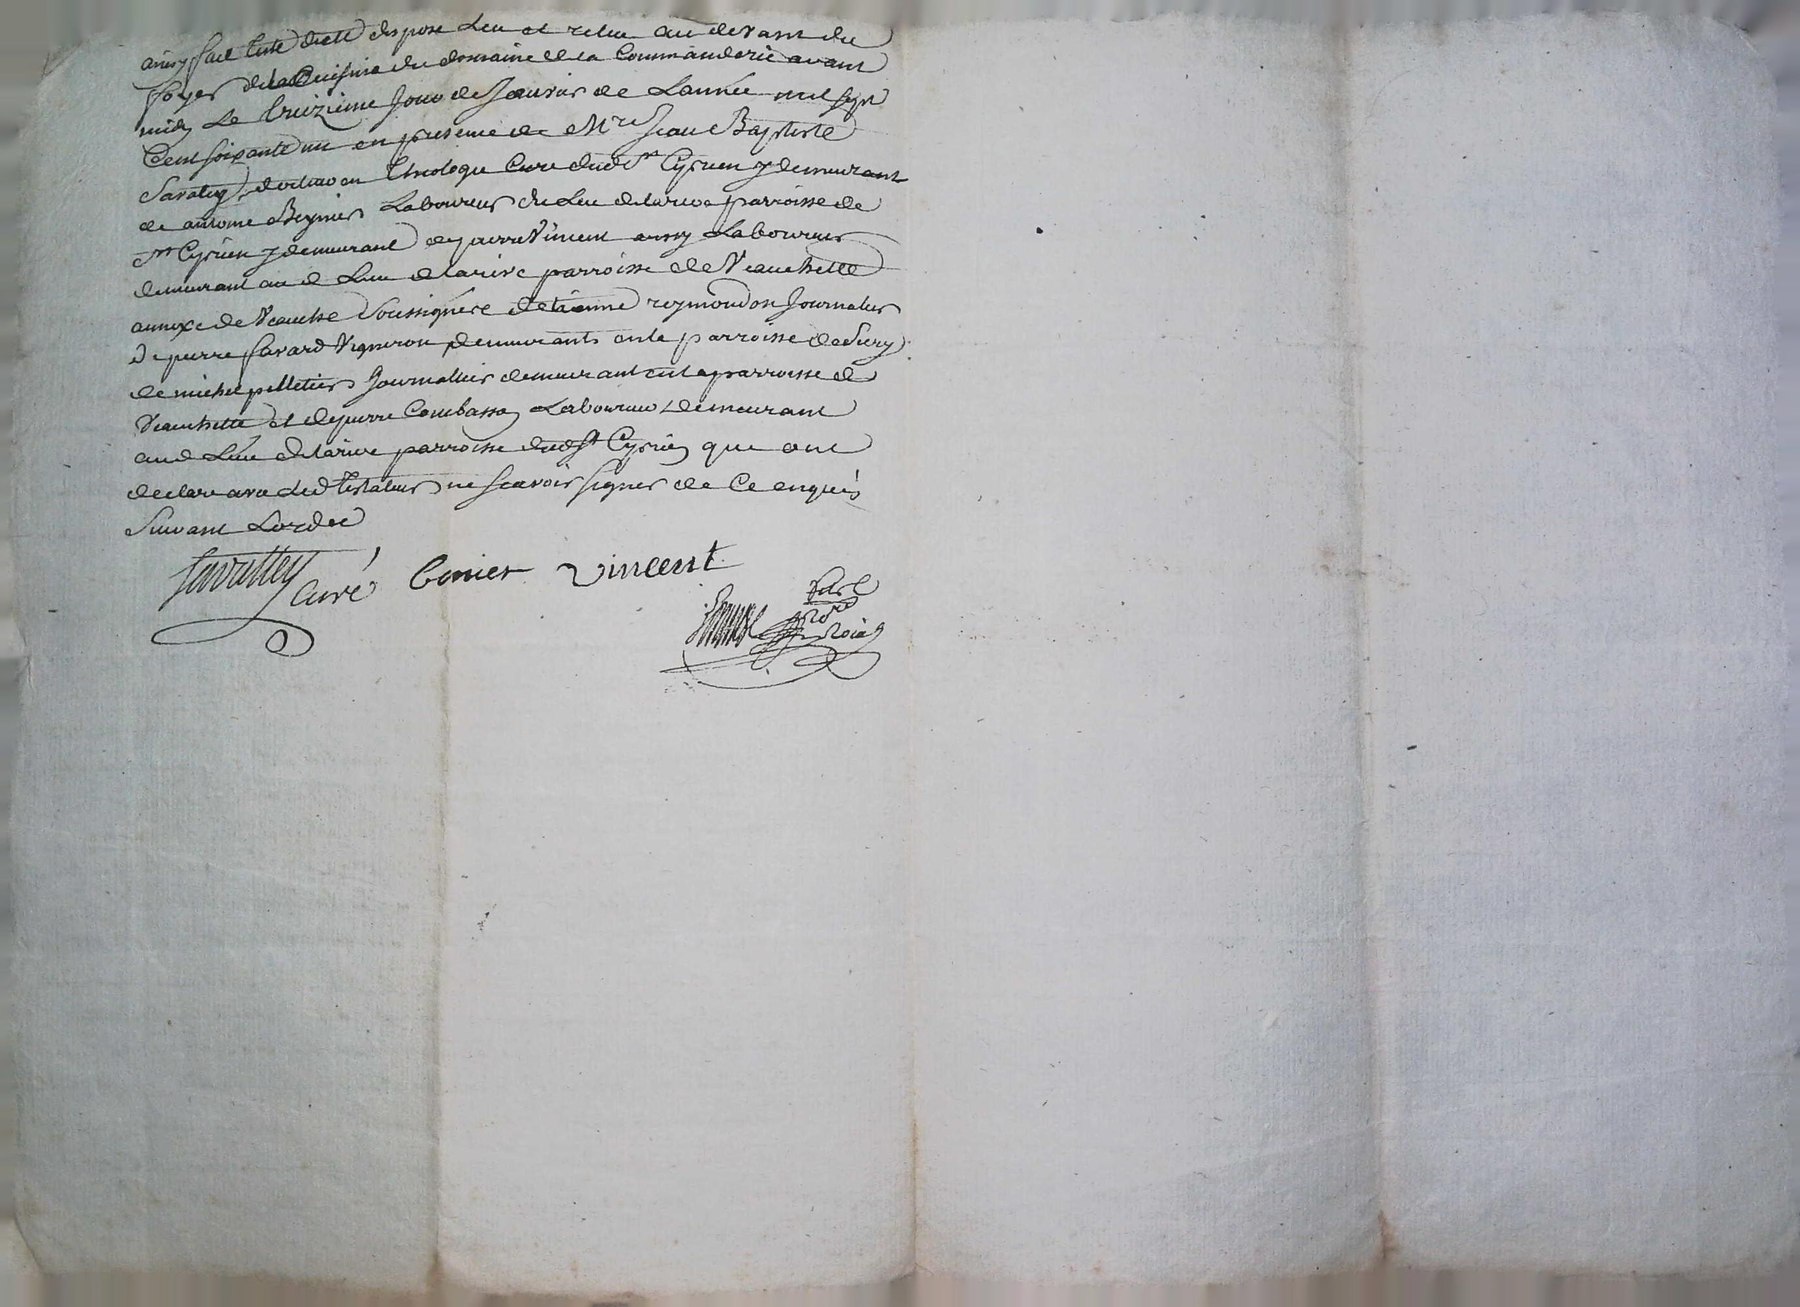 ainsy fait testé dicté disposé Leu et releu au devant du
foyer de la Cuisine du domaine de la Commanderie avant
midy Le treizieme Jour de Janvier de Lannée mil sept
Cent soixante un en presence de Mre Jean Baptiste
docteur en theologie Curé dud St Cyprien y demeurant
de antoine Laboureur du Lieu de larive parroisse de
St Cyprien y demeurant de pierre Vincent aussy Laboureur
demeurant au d Lieu de larive parroisse de Veauchette
annexe de Veauche Soussignés detienne reymondon Journalier
de pierre favard Vigneron demeurants en la parroisse de Sury
de michel pelletier Journallier demeurant en la parroisse de
Veauchette et de pierre Combasson Laboureur demeurant
aud Lieu de larive parroisse dud St Cyprien que ont
declare avec Led testateur ne scavoir signer de Ce enquis
Suivant Lordce
Curé vincent